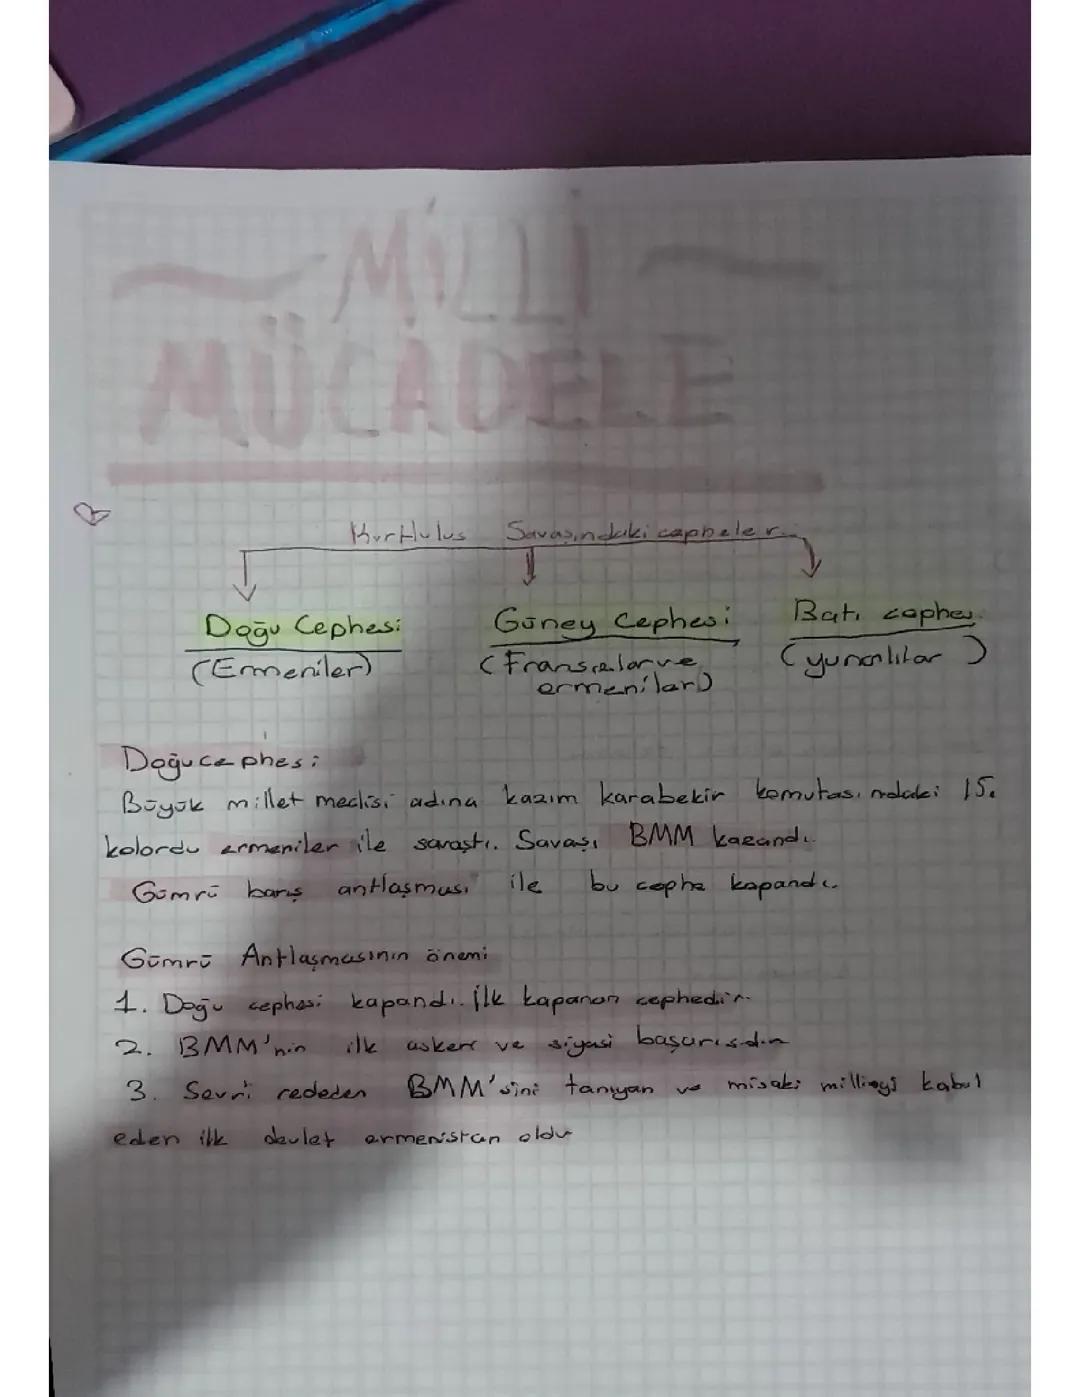 ~ MİLLİ ~
MÜCADELE
Kurtulus Savasındaki cepheler
Doğu Cephesi Güney Cephesi Batı cephes
(Ermeniler) (Fransızlar ve ermeniler) (yunanlılar)
Doğu cephesi
Büyük millet meclisi adına kazım karabekir komutasındaki 15.
kolordu ermeniler ile savaştı. Savaşı BMM kazandı.
Gümrü barış antlaşması ile bu cephe kapandı.
Gümrü Antlaşmasının önemi
1. Doğu cephesi kapandı. İlk kapanan cephedir.
2. BMM'nin ilk askeri ve siyasi başarısıdır
3. Sevri redden BMM'sini tanıyan ve misaki milliyi kabul
eden ilk devlet ermenistan oldu